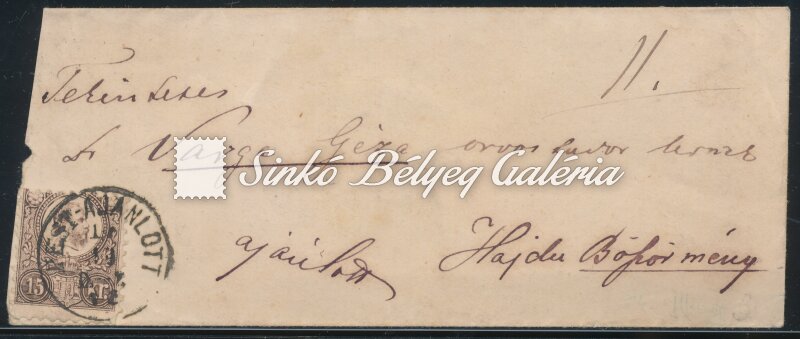 11.
Tekintetes
Dr Varga Géza orvos tudor urnak
Sinkó Bélyeg Galéria
ajánlott Hajdu Böszörmény
PEST-AJÁNLOTT
15 KR.